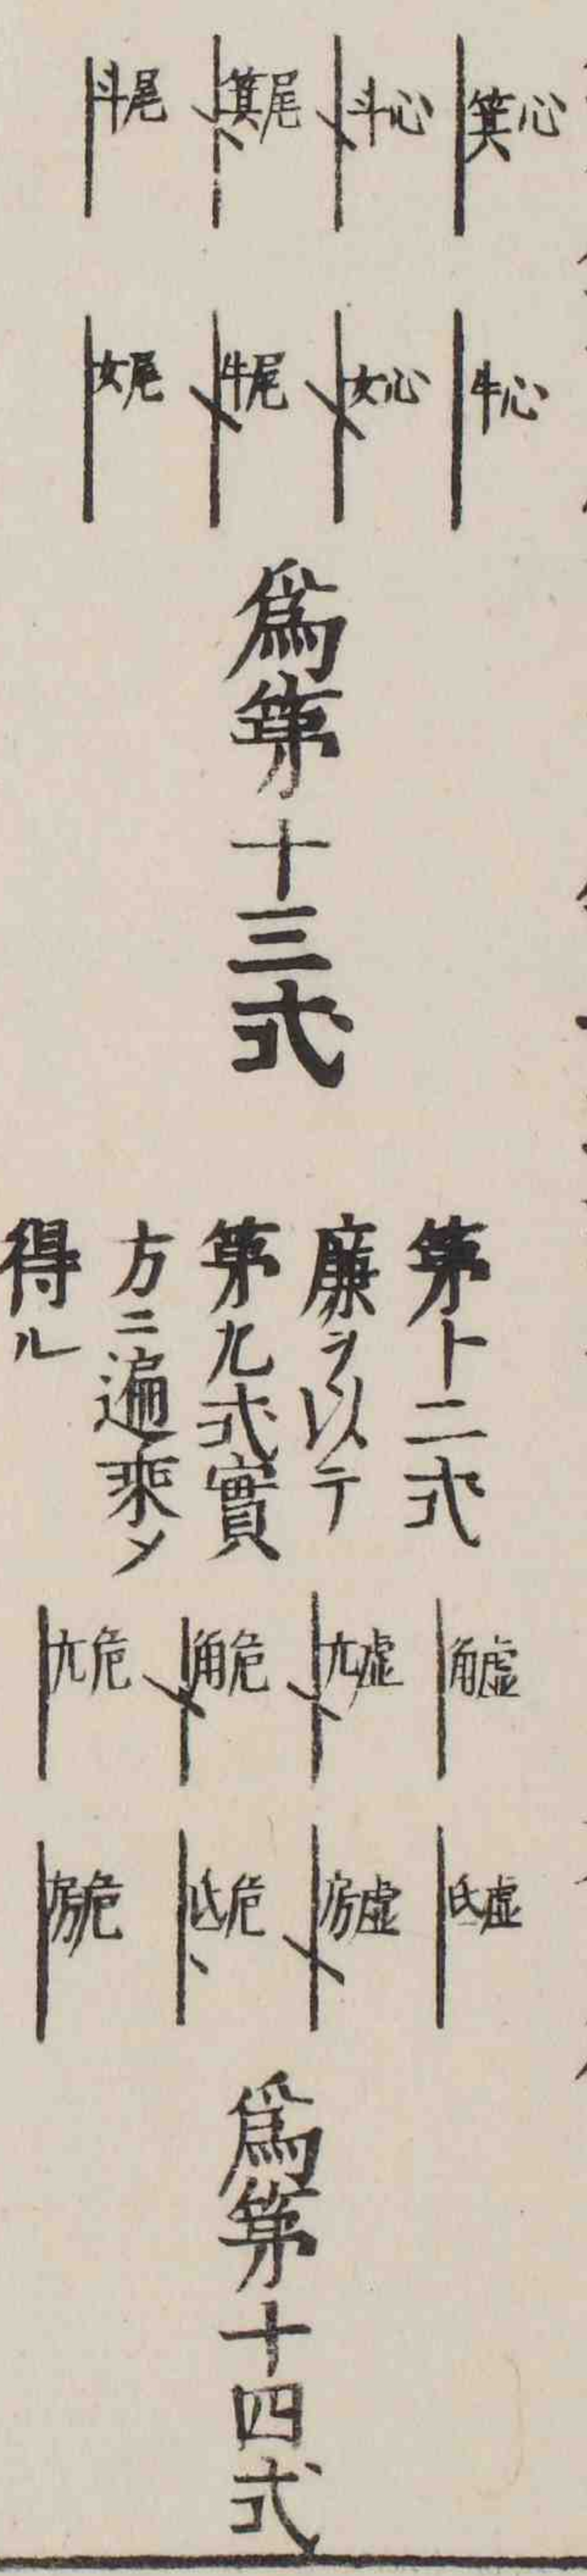 箕心
斗心
箕尾
斗尾
牛心
女心
牛尾
女尾
爲第十三式
第十二式
廉ヲ以テ
第九式實
方ニ遍乘メ
得ル
角虚
亢虚
角危
亢危
氐虚
房虚
氐危
房危
爲第十四式